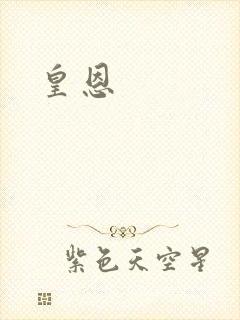 皇恩
紫色天空星